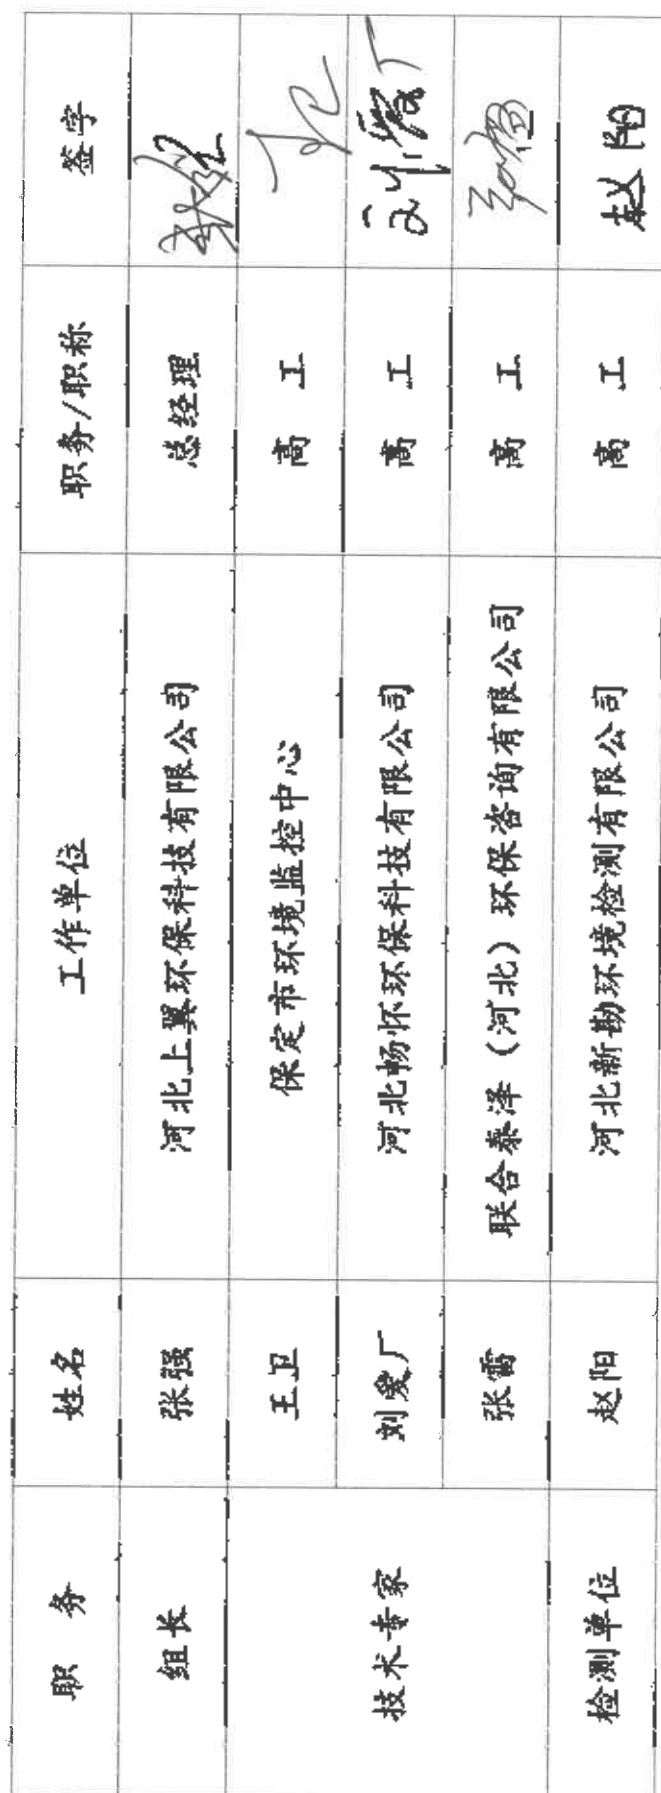 职 务 姓名 工作单位 职务/职称 签字
组长 张强 河北上翼环保科技有限公司 总经理
技术专家 王卫 保定市环境监控中心 高 工
刘爱广 河北畅怀环保科技有限公司 高 工 刘爱广
张雷 联合泰泽（河北）环保咨询有限公司 高 工
检测单位 赵阳 河北新勘环境检测有限公司 高 工 赵阳